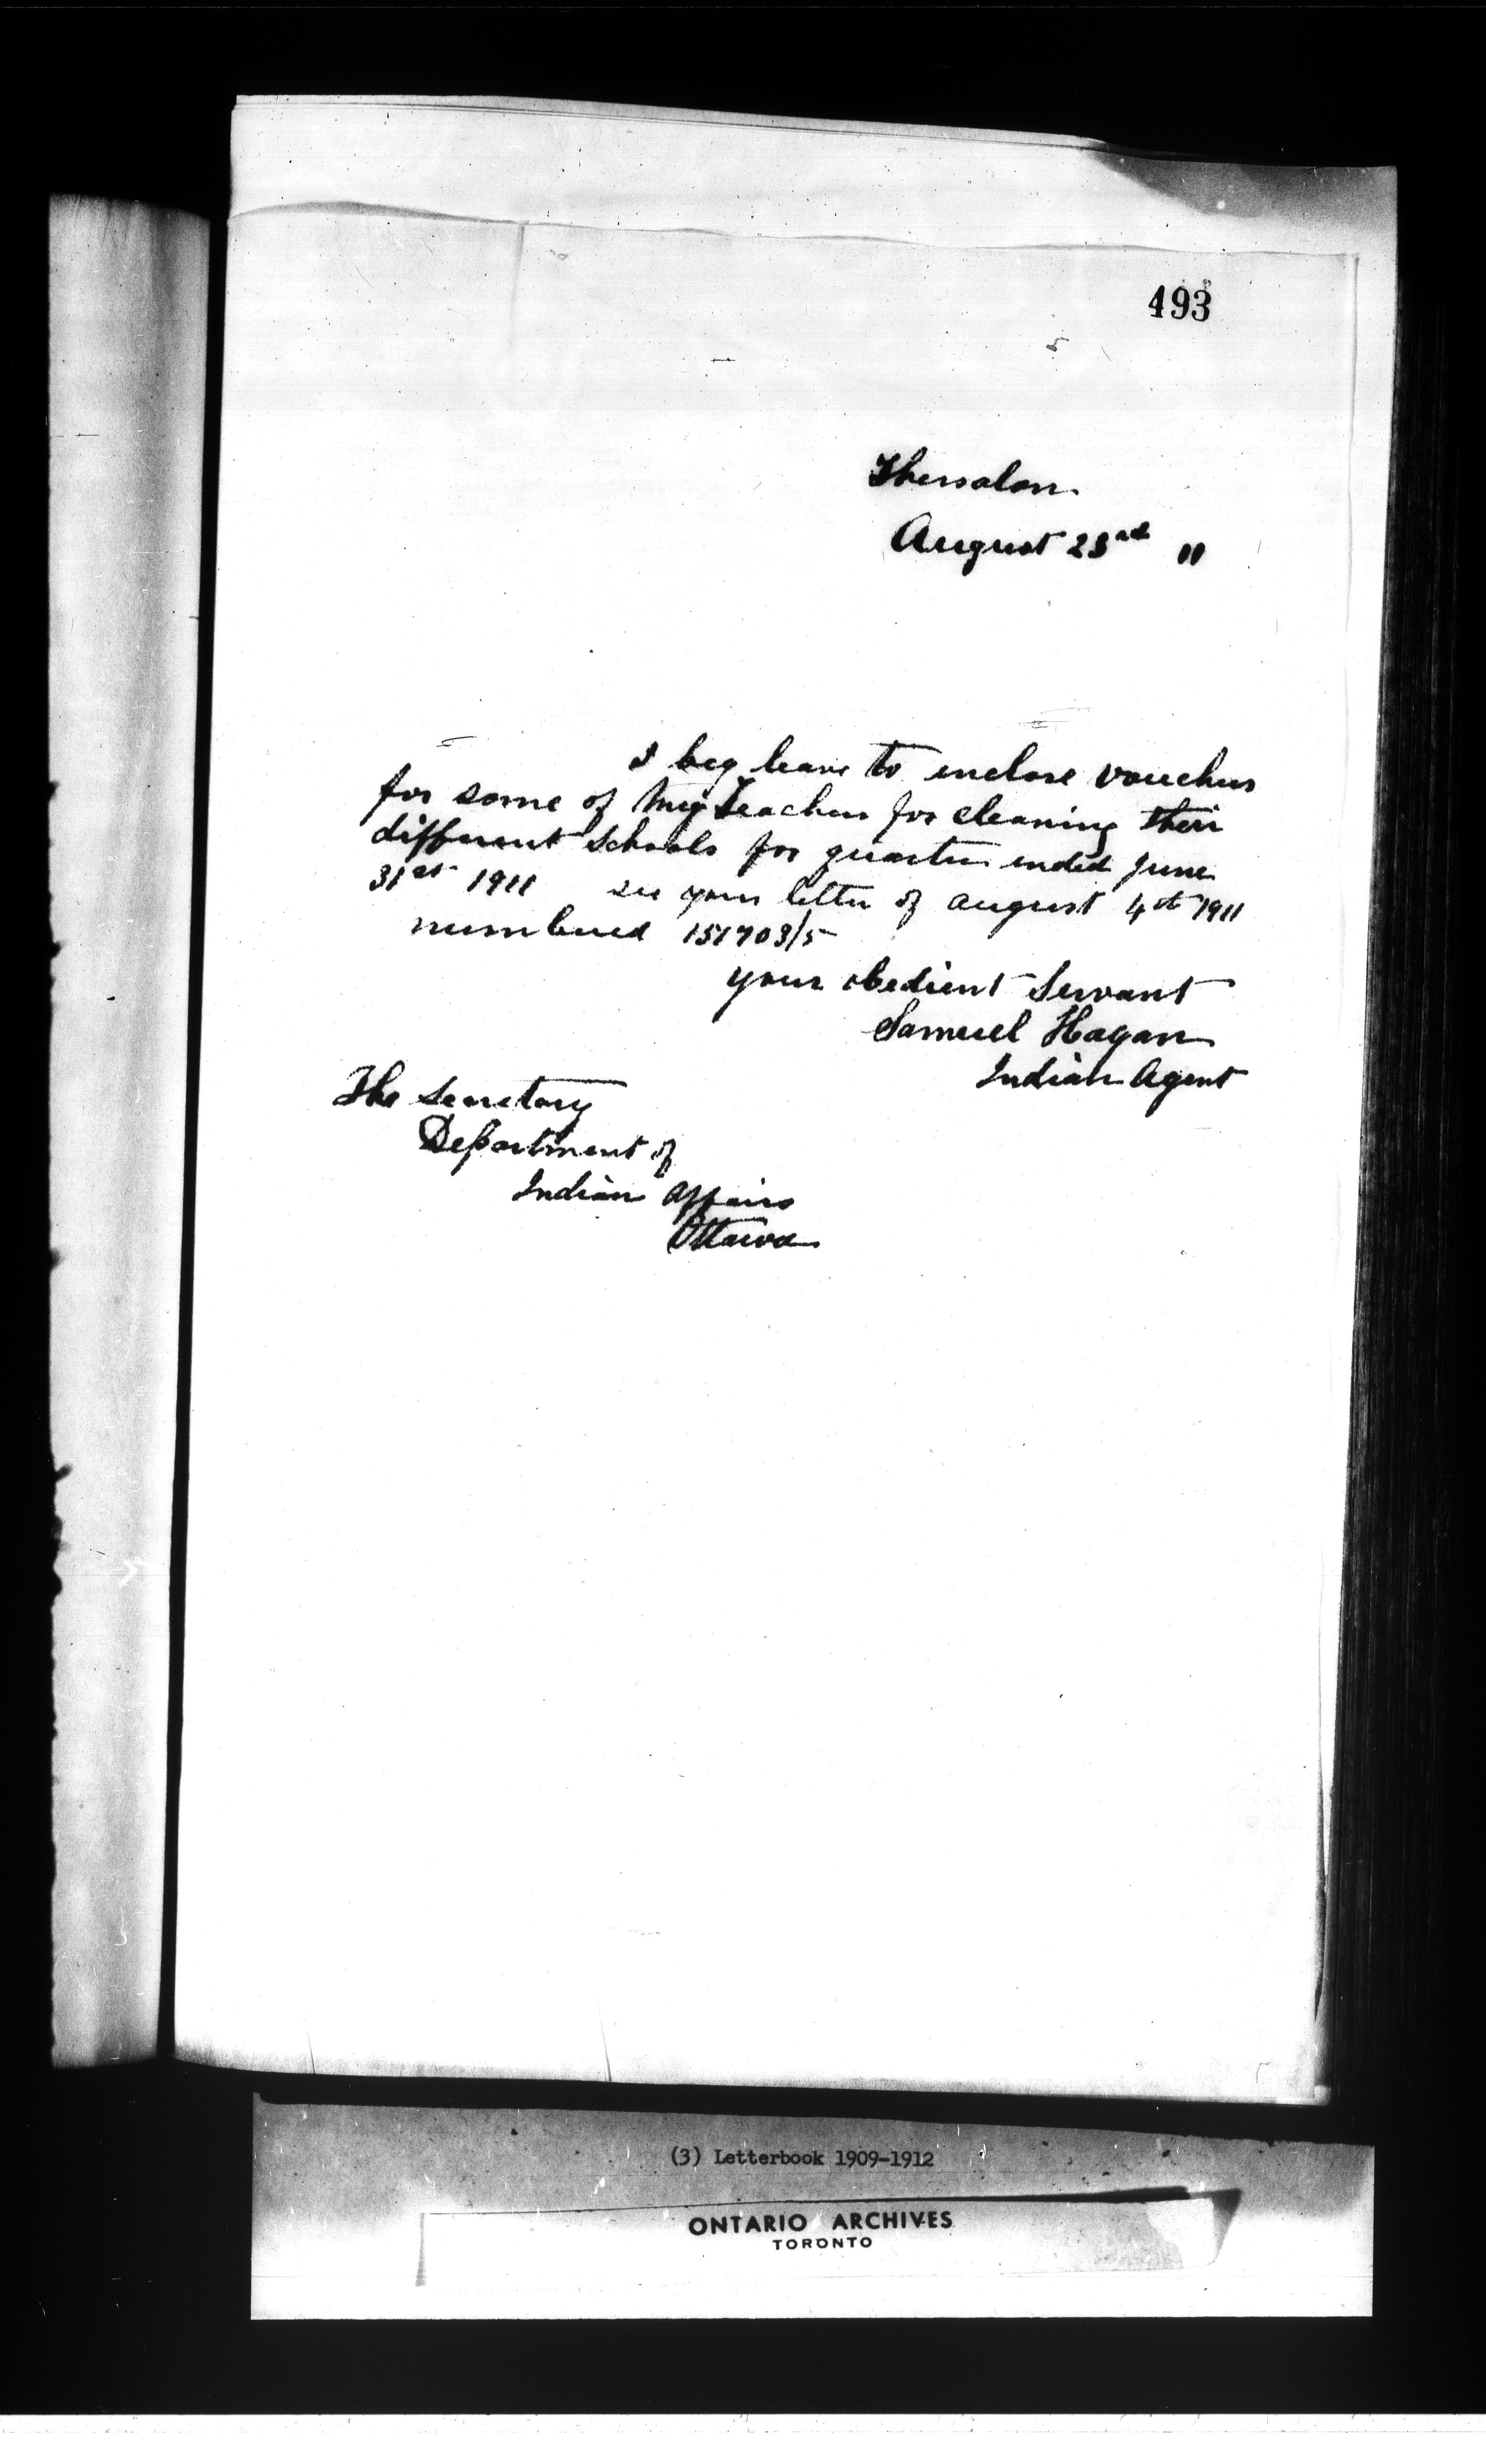 493
Thessalon
August 23rd 11
I beg leave to enclose vouchers
for some of my Teachers for cleaning their
different schools for quarter ended June
31st 1911 see your letter of august 4th 1911
numbered 151703/5
your obedient Servant
Samuel Hagan
Indian Agent
The Secretary
Department of
Indian Affairs
Ottawa
(3) Letterbook 1909-1912
ONTARIO ARCHIVES
TORONTO